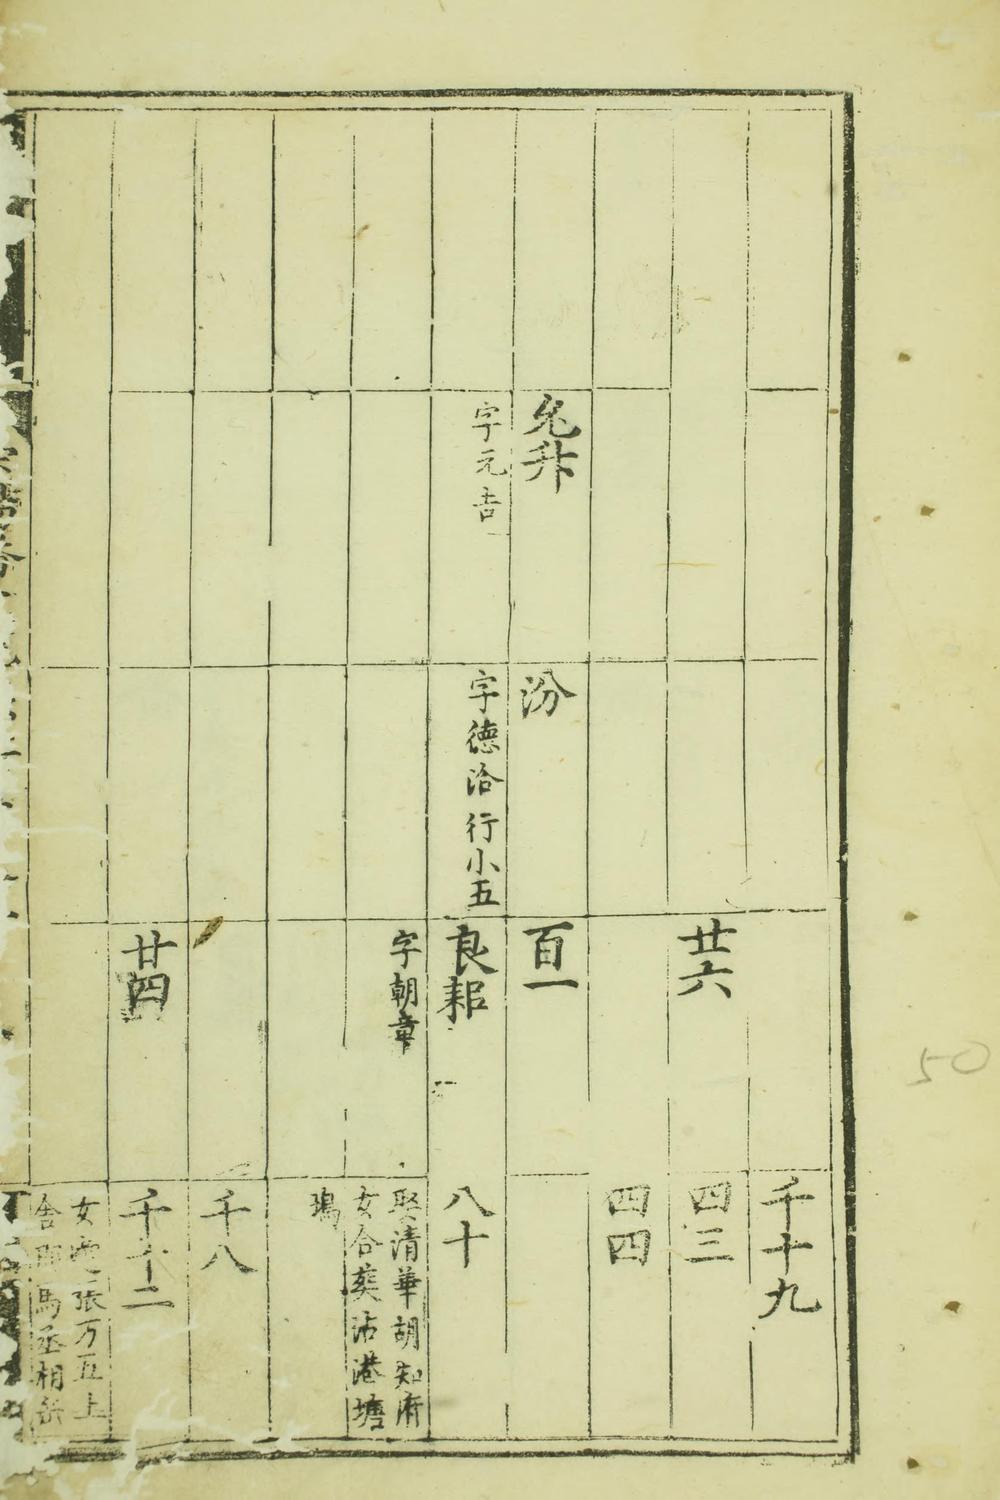 千十九
廿六
四三
四四
升
汾
百一
字元吉
字德洽行小五
良耜
八十
字朝章
娶清華胡知府
女合葬沽港塘
塢
千八
廿四
千十二
女 張万五上
舍 馬丞相